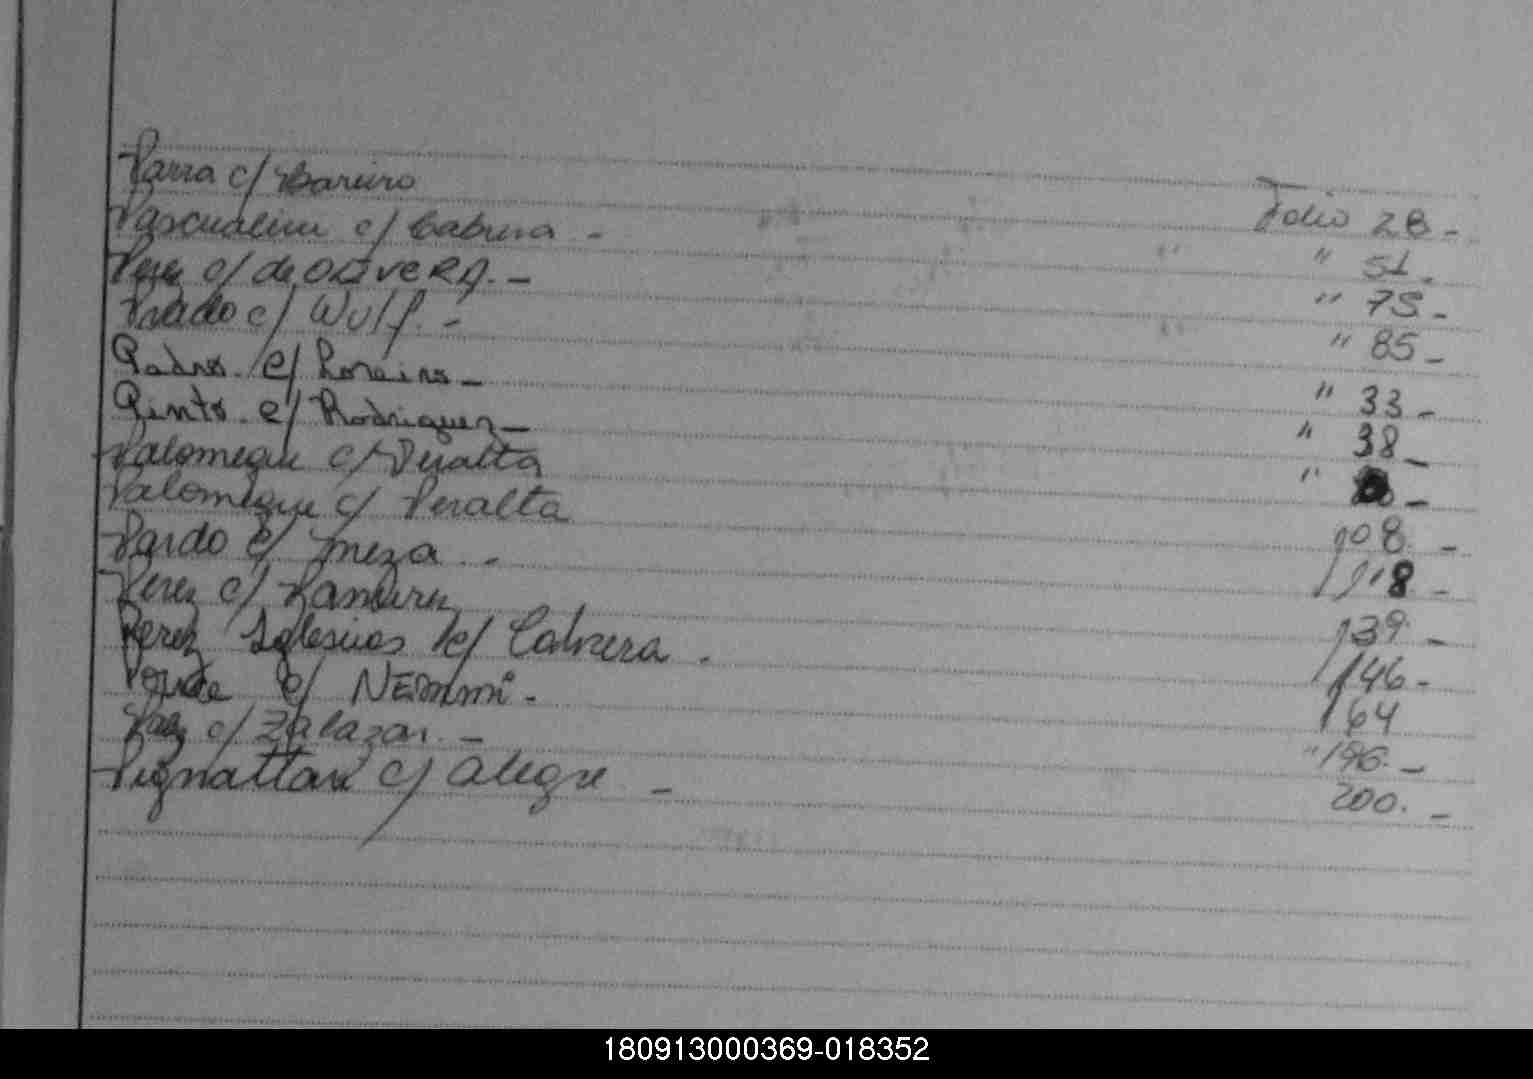 Parra c/ Barreiro Folio 28 -
Pascualini c/ Cabrera - " 51.
Perez c/ de OLIVERA. - " 75 -
Prado c/ Wulf. - " 85 -
Pedro. c/ Loreiro - " 33 -
Pinto. c/ Rodriguez - " 38 -
Palomeque c/ Peralta " -
Palomeque c/ Peralta 108. -
Pardo c/ meza. - 118. -
Perez c/ Ramirez 139. -
Perez Iglesias c/ Cabrera. 146 -
c/ NEMMi - 164
Paez c/ Zalazar. - " 196. -
Pignattari c/ Alegre - 200. -
180913000369-018352